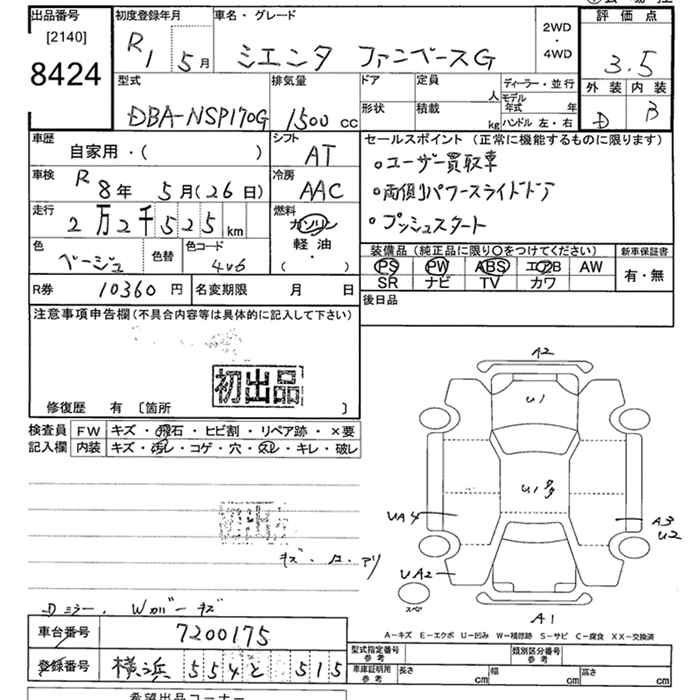 出品番号
[2140]
8424
初度登録年月
R1 5月
車名・グレード
シエンタ ファンベースG
2WD
・
4WD
評価点
3.5
外装 内装
D B
型式
DBA-NSP170G
排気量
1500 cc
ドア
形状
定員
人
積載
kg
ディーラー・並行
モデル年式 年
ハンドル 左・右
車歴
自家用・( )
シフト
AT
車検
R8年 5月(26日)
冷房
AAC
走行
2万2千525km
燃料
ガソリン
軽油
・
( )
色
ベージュ
色替
色コード
4V6
R券
10360円
名変期限 月 日
セールスポイント(正常に機能するものに限ります)
○ユーザー買取車
○両側パワースライドドア
○プッシュスタート
装備品(純正品に限り○をつけてください)
PS PW ABS エアB AW
SR ナビ TV カワ
新車保証書
有・無
後日品
注意事項申告欄(不具合内容等は具体的に記入して下さい)
初出品
修復歴 有 〔箇所 〕
検査員記入欄
FW キズ・飛石・ヒビ割・リペア跡・×要
内装 キズ・汚レ・コゲ・穴・スレ・キレ・破レ
初出
Dミラー、Wカバーキズ
車台番号 7200175
登録番号 横浜 554 と 515
希望出品コーナー
A2
U1
U1多
UA4
A3
U2
UA2
スペア
A1
A-キズ E-エクボ U-凹み W-補修跡 S-サビ C-腐食 XX-交換済
型式指定番号 参考
類別区分番号 参考
車庫証明用 参考
長さ cm 幅 cm 高さ cm